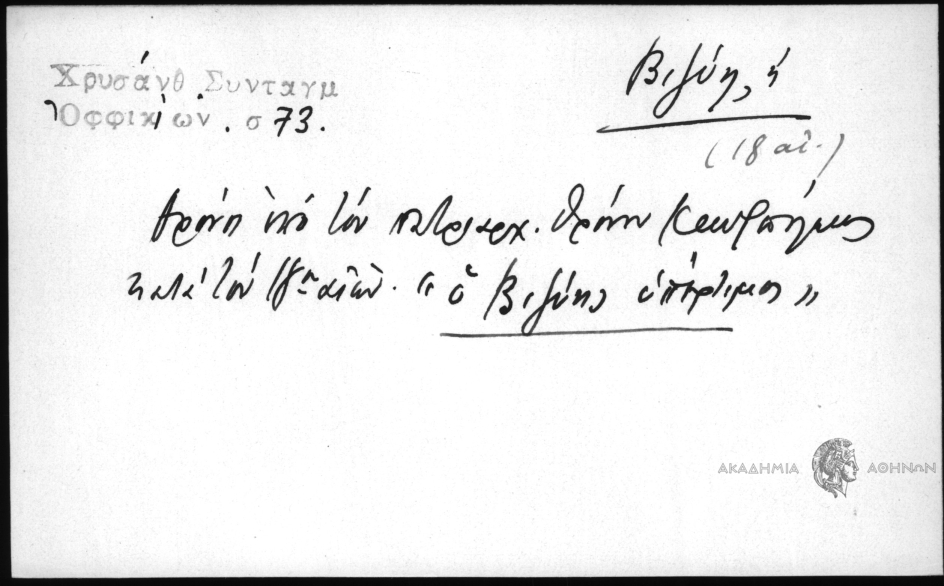 Χρυσάνθ Συνταγμ
Ὀφφικίων. σ 73.
Βιζύη, ἡ
(18 αἰ.)
ὑπὸ τὸν πατριαρχ. θρόνον Κωνσταντινουπόλεως
κατὰ τὸν 18ον αἰῶν. "ὁ Βιζύης ὑπέρτιμος"
ΑΚΑΔΗΜΙΑ ΑΘΗΝΩΝ